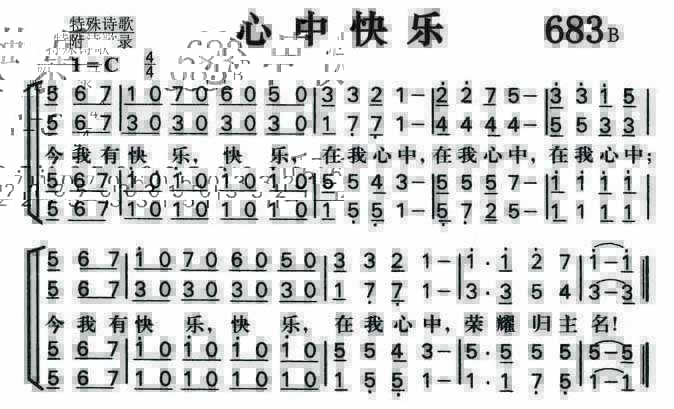 特殊诗歌
附 录
心中快乐 683B
1=C 4/4
5 67 10 70 60 50 3 3 2 1- 2 2 7 5- 3 3 1 5
5 67 30 30 30 30 1 7 7 1- 4 4 4 4- 5 5 3 3
今我有快 乐, 快 乐, 在我心中,在我心中,在我心中;
5 67 10 10 10 10 5 5 4 3- 5 5 5 7- 1 1 1 1
5 67 10 10 10 10 1 5 5 1- 5 7 2 5- 1 1 1 1
5 67 10 70 60 50 3 3 2 1- 1· 1 2 7 1-1
5 67 30 30 30 30 1 7 7 1- 3· 3 5 4 3-3
今我有快 乐, 快 乐, 在我心中,荣耀归主名!
5 67 10 10 10 10 5 5 4 3- 5· 5 5 5 5-5
5 67 10 10 10 10 1 5 5 1- 1· 1 7 5 1-1